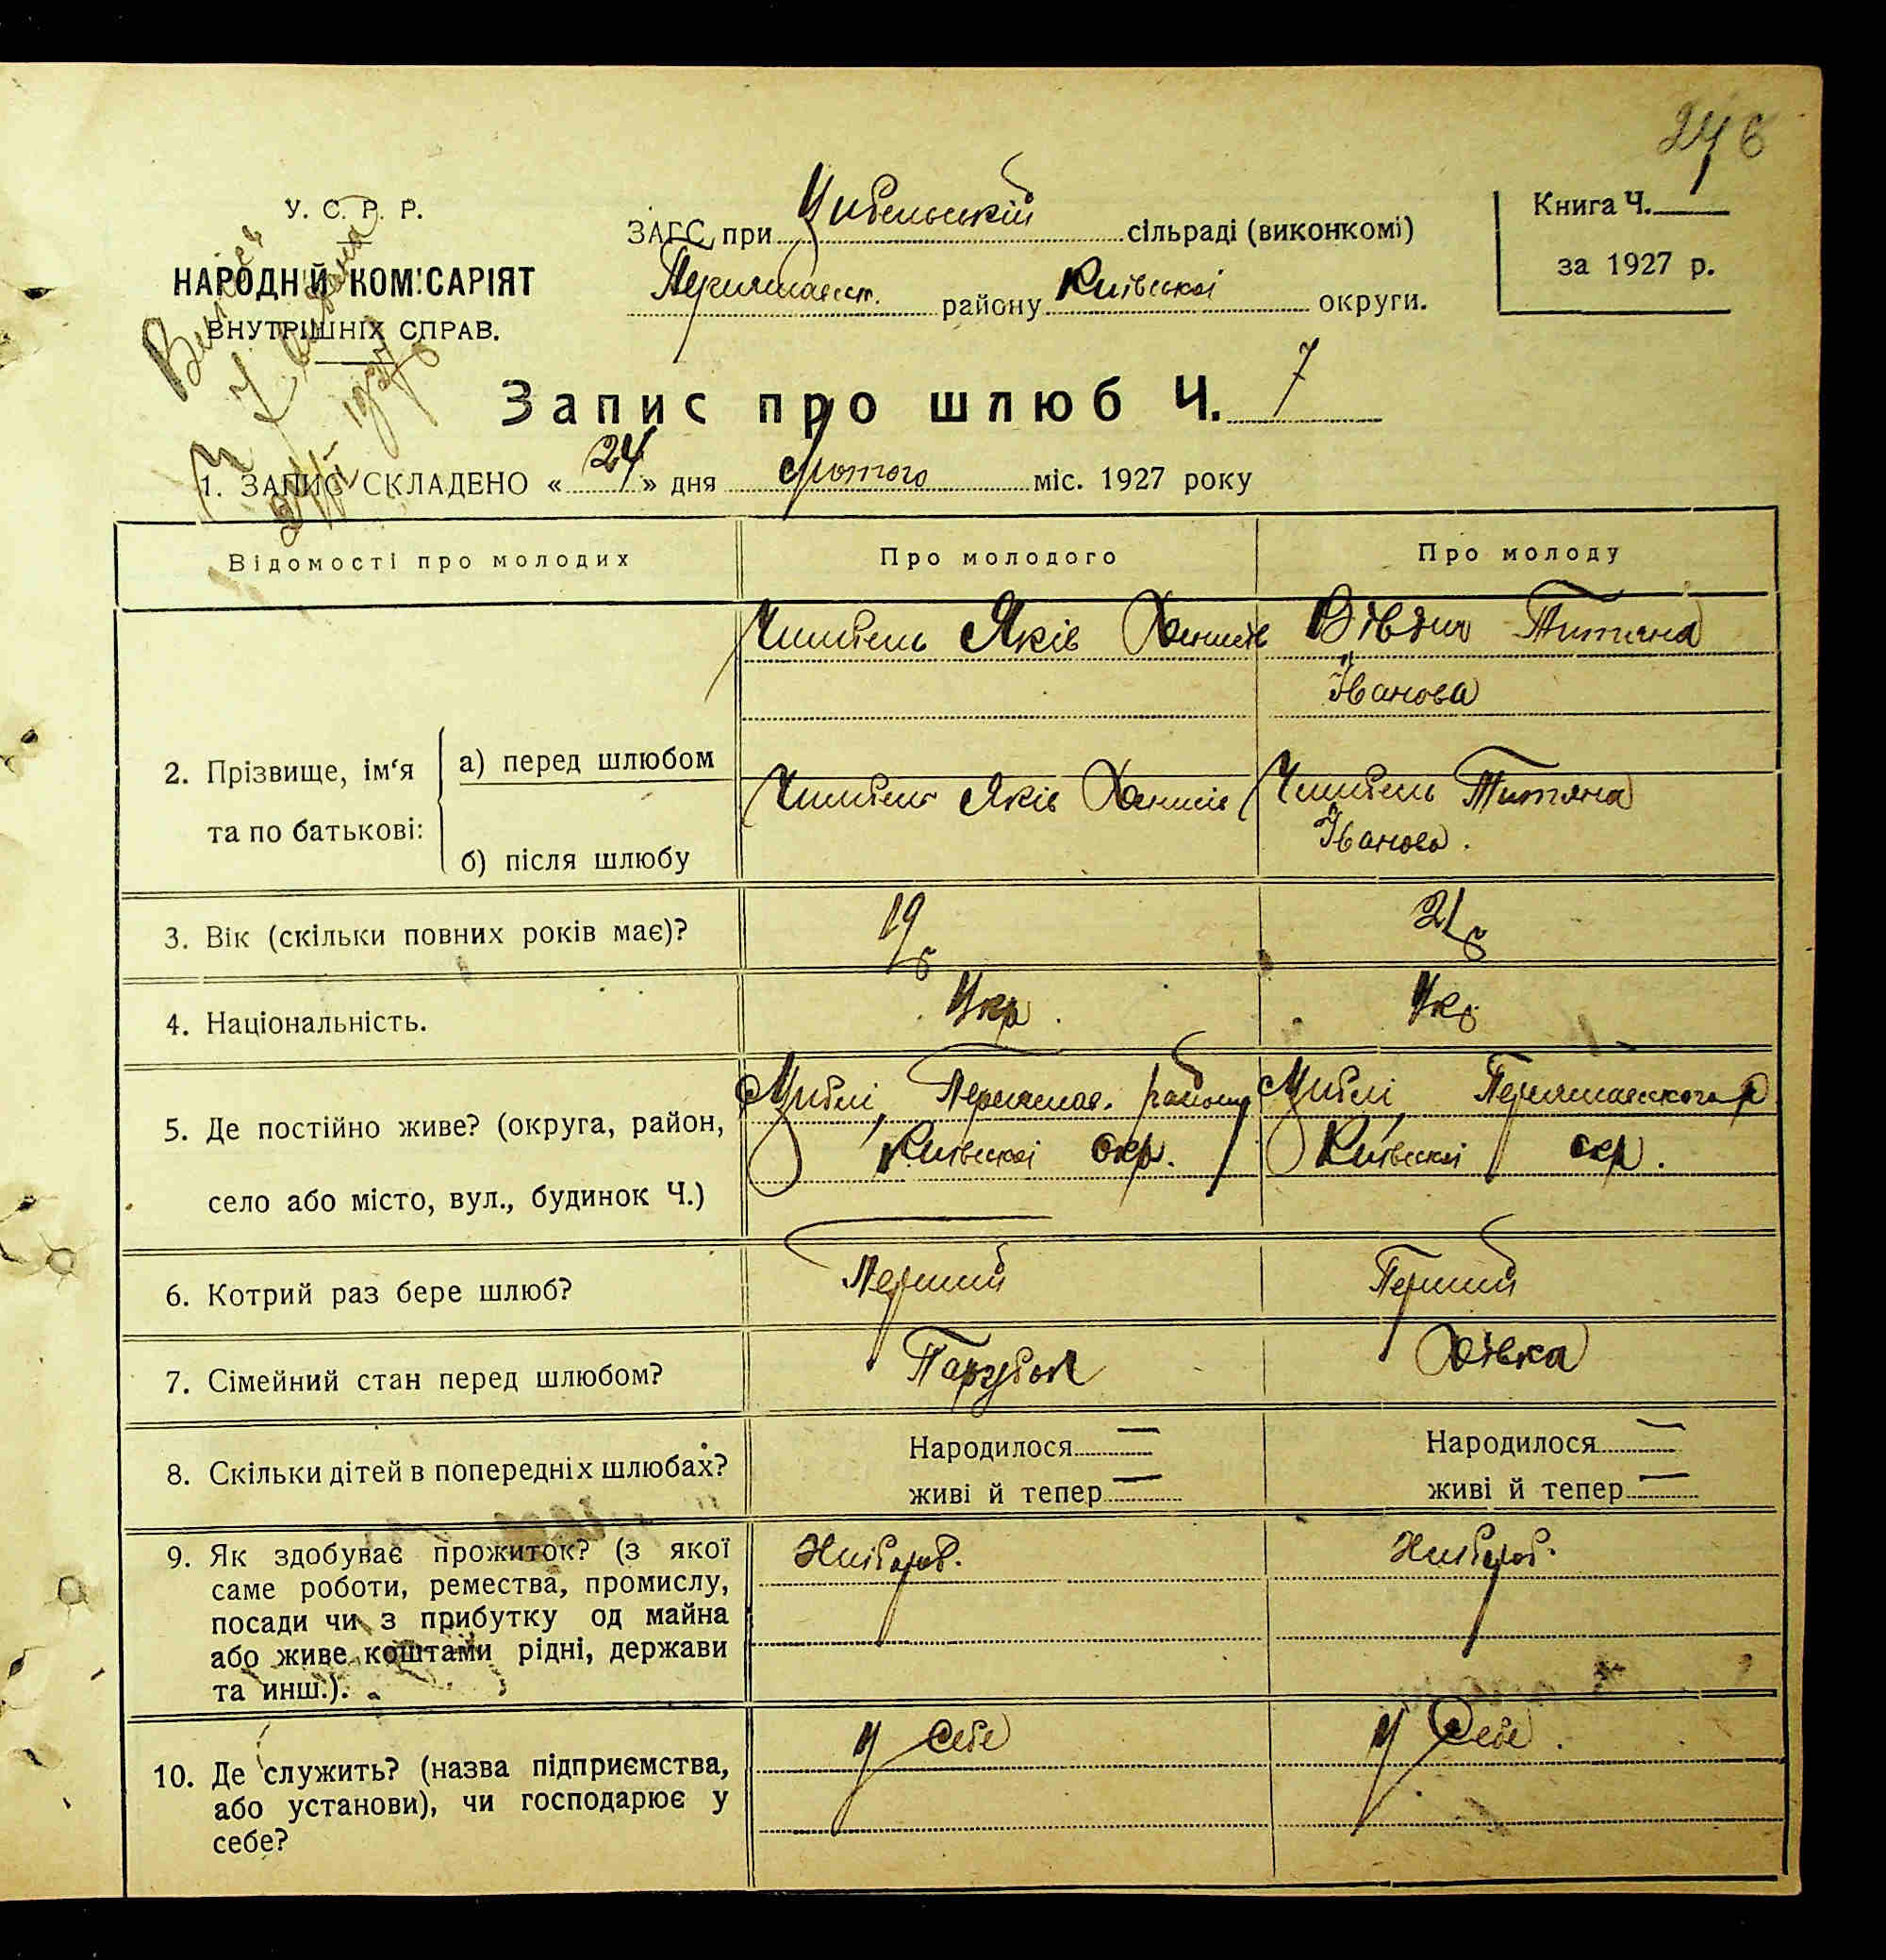 246
У. С. Р. Р.
НАРОДНІЙ КОМІСАРІЯТ
ВНУТРІШНІХ СПРАВ.
ЗАГС при Цибельській сільраді (виконкомі)
Переяславск. району Київської округи.
Книга Ч.
за 1927 р.
Запис про шлюб Ч. 7
1. ЗАПИС СКЛАДЕНО « 24 » дня лютого міс. 1927 року
Відомості про молодих
Про молодого
Про молоду
2. Прізвище, ім‘я та по батькові:
а) перед шлюбом
Яків
Титяна
Іванова
б) після шлюбу
Яків
Титяна
Іванова.
3. Вік (скільки повних років має)?
19
21
4. Національність.
Укр.
Укр
5. Де постійно живе? (округа, район,
село або місто, вул., будинок Ч.)
с Циблі, Переяслав. району
Київської окр.
с Циблі, Переяславського р
Київскої окр.
6. Котрий раз бере шлюб?
Перший
Перший
7. Сімейний стан перед шлюбом?
Парубок
Дівка
8. Скільки дітей в попередніх шлюбах?
Народилося —
живі й тепер —
Народилося —
живі й тепер —
9. Як здобуває прожиток? (з якої
саме роботи, ремества, промислу,
посади чи з прибутку од майна
або живе коштами рідні, держави
та инш.).
Хлібороб.
Хлібороб.
10. Де служить? (назва підприємства,
або установи), чи господарює у
себе?
у себе
у себе.